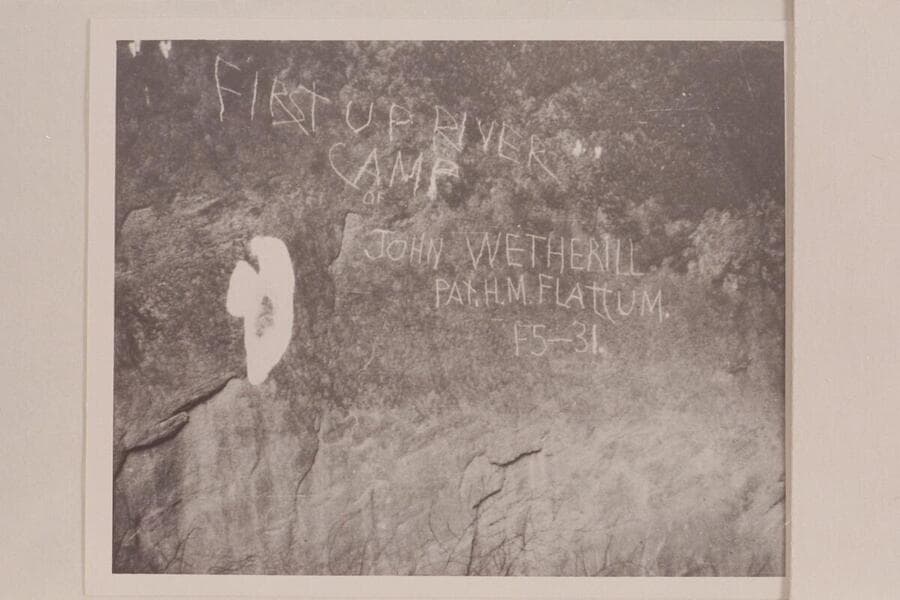 FIRST UP RIVER
CAMP
OF
JOHN WETHERILL
PAT. H.M. FLATTUM.
F5-31.